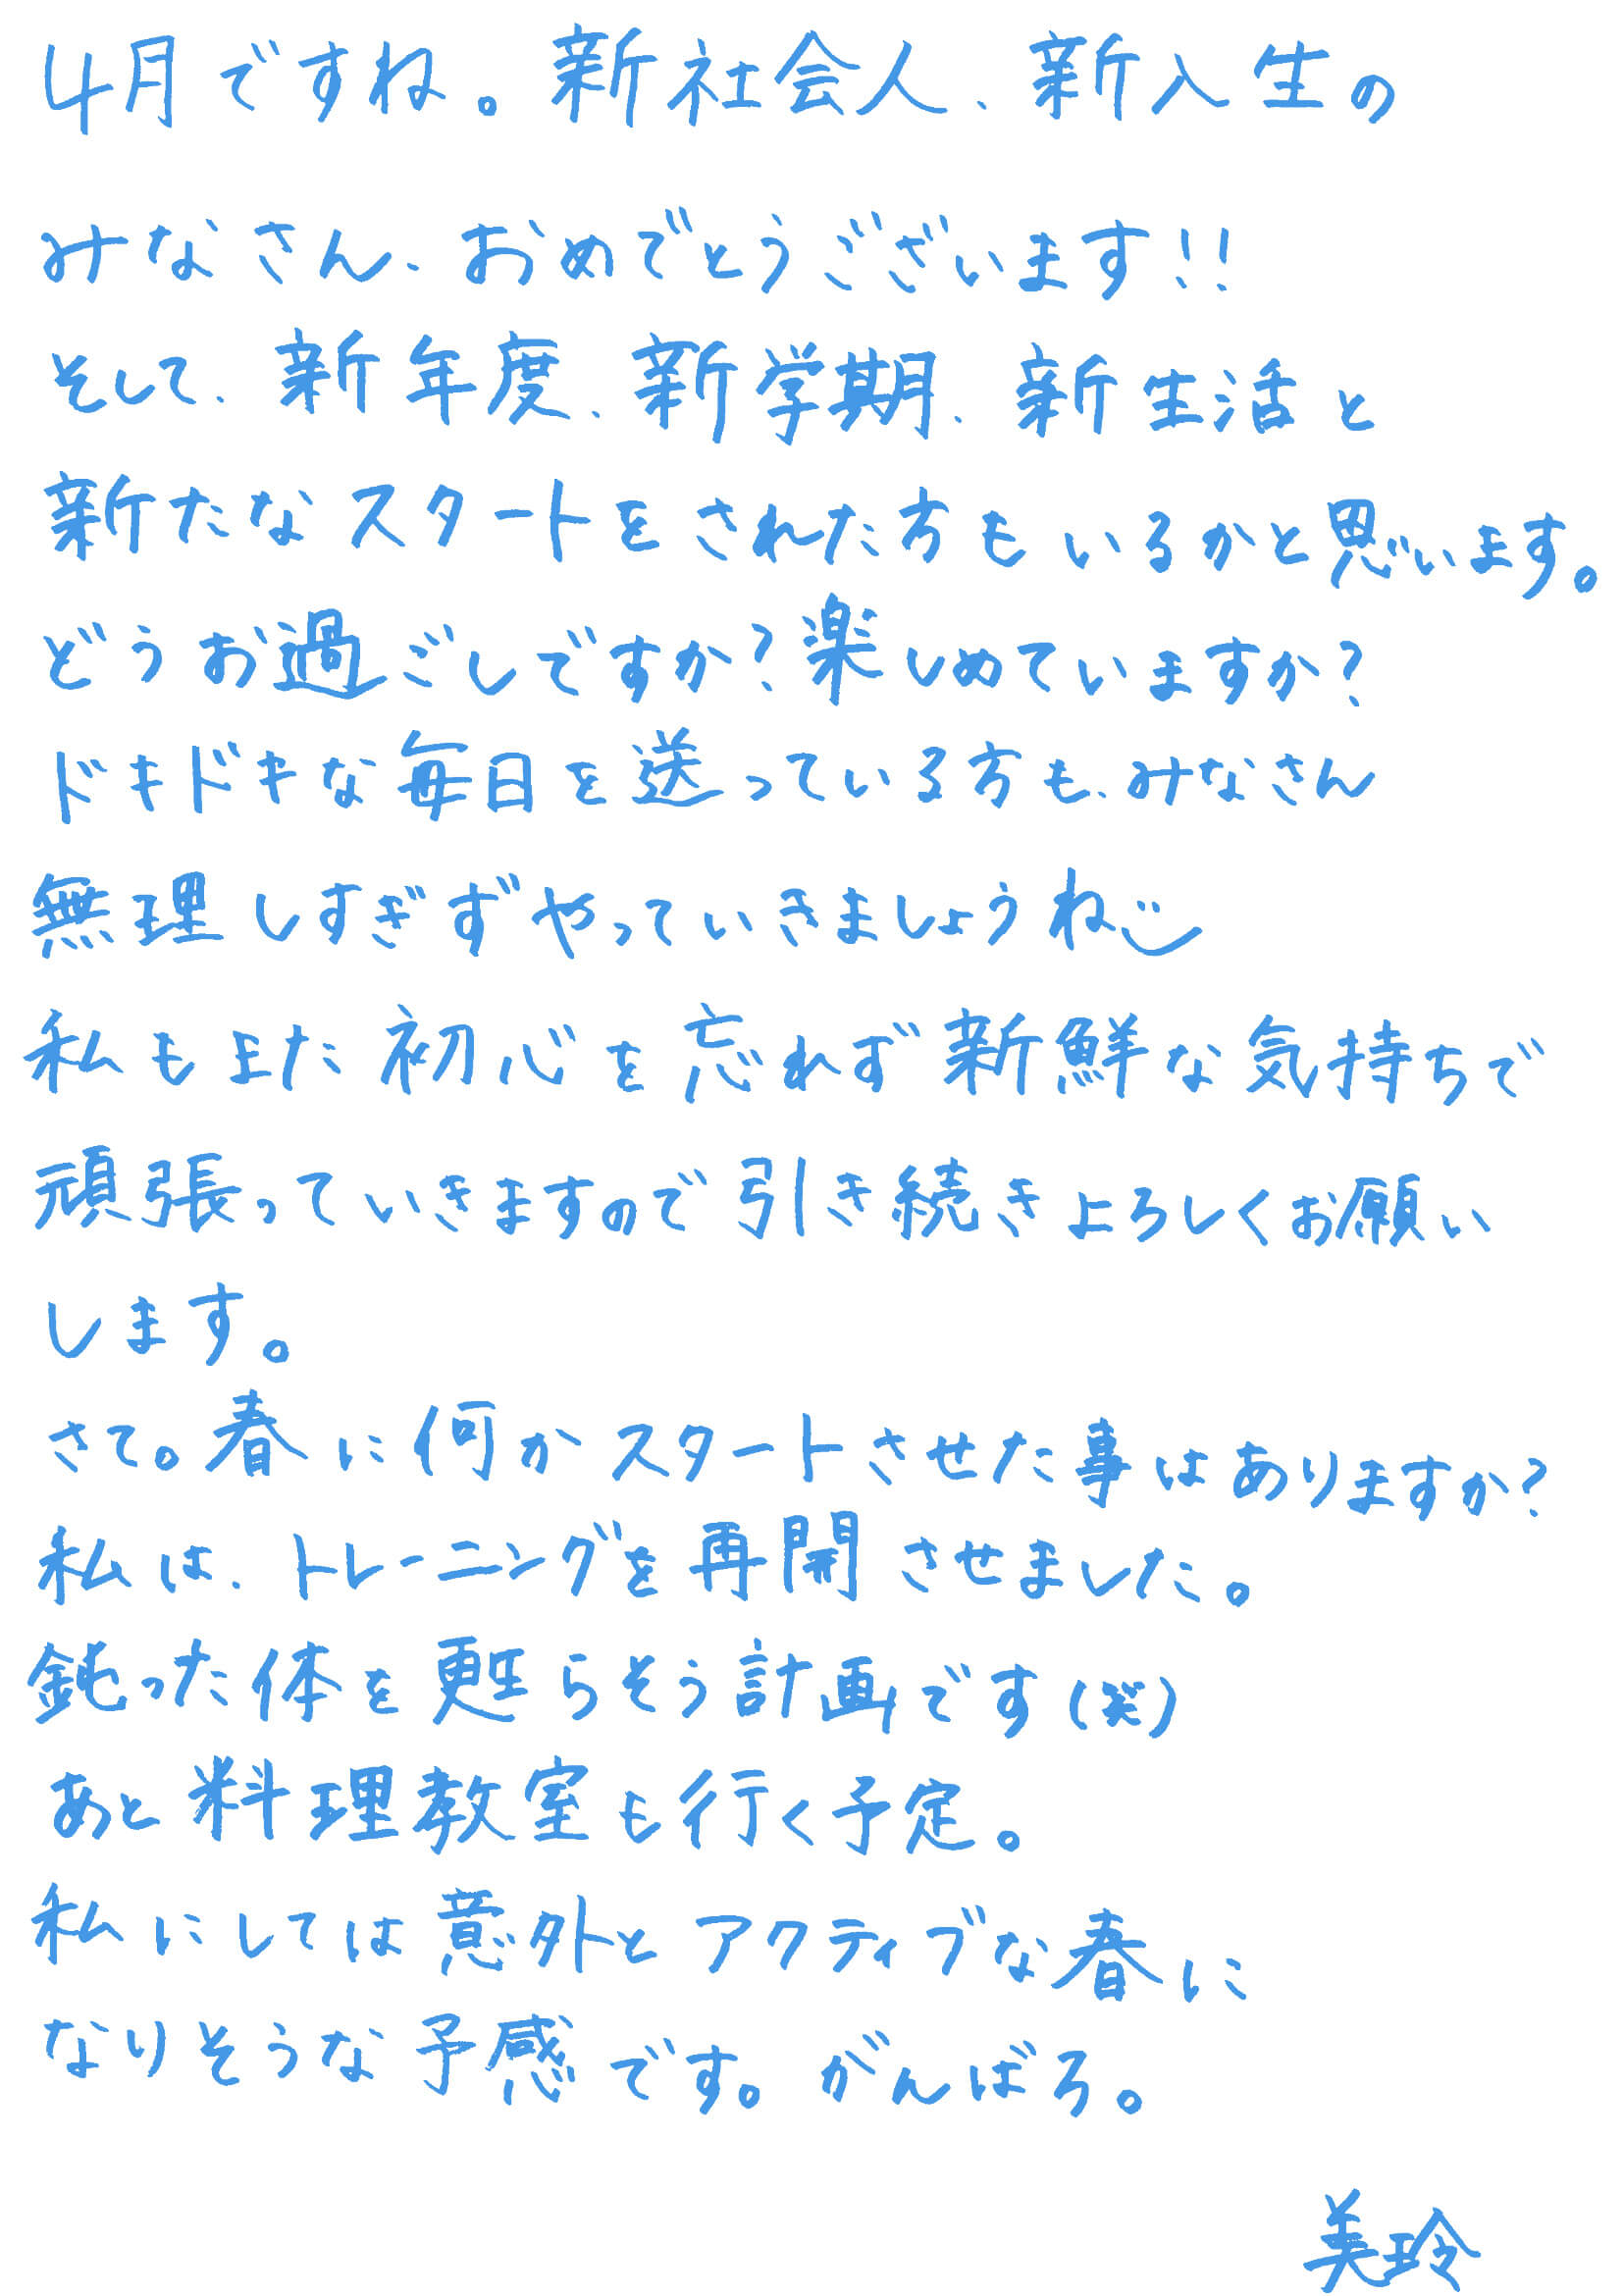 4月ですね。新社会人、新入生の
みなさん、おめでとうございます!!
そして、新年度、新学期、新生活と
新たなスタートをされた方もいるかと思います。
どうお過ごしですか?楽しめていますか?
ドキドキな毎日を送っている方も、みなさん
無理しすぎずやっていきましょうね
私もまた初心を忘れず新鮮な気持ちで
頑張っていきますので引き続きよろしくお願い
します。
さて。春に何かスタートさせた事はありますか?
私は、トレーニングを再開させました。
鈍った体を甦らそう計画です(笑)
あと料理教室も行く予定。
私にしては意外とアクティブな春に
なりそうな予感です。がんばろ。
美玲